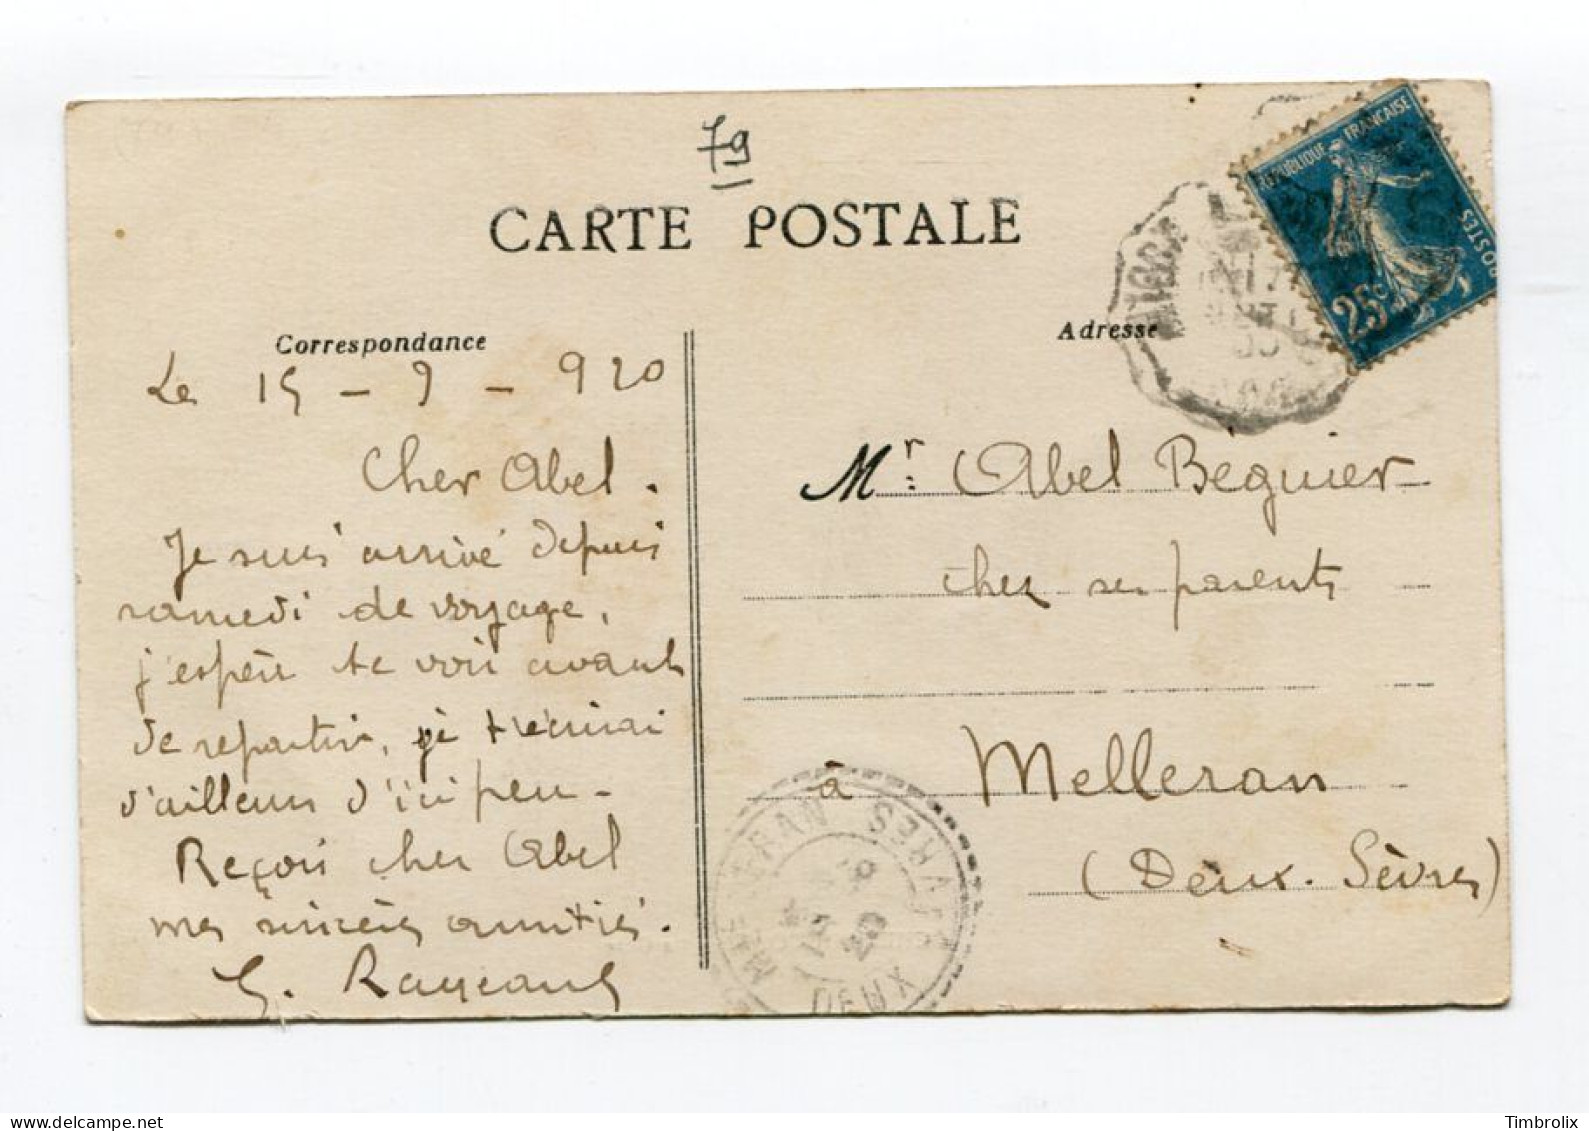 79
CARTE POSTALE
REPUBLIQUE FRANÇAISE
POSTES
25c
Correspondance
Le 15 - 9 - 920
Cher Abel.
Je suis arrivé depuis
samedi de voyage,
j'espère te voir avant
de repartir, je t'écrirai
d'ailleurs d'ici peu -
Reçois cher Abel
mes sincères amitiés.
G. Rayeaud
Adresse
Mr. Abel Béguier
chez ses parents
à Melleran
(Deux-Sèvres)
MELLERAN
DEUX SÈVRES
Timbrolix